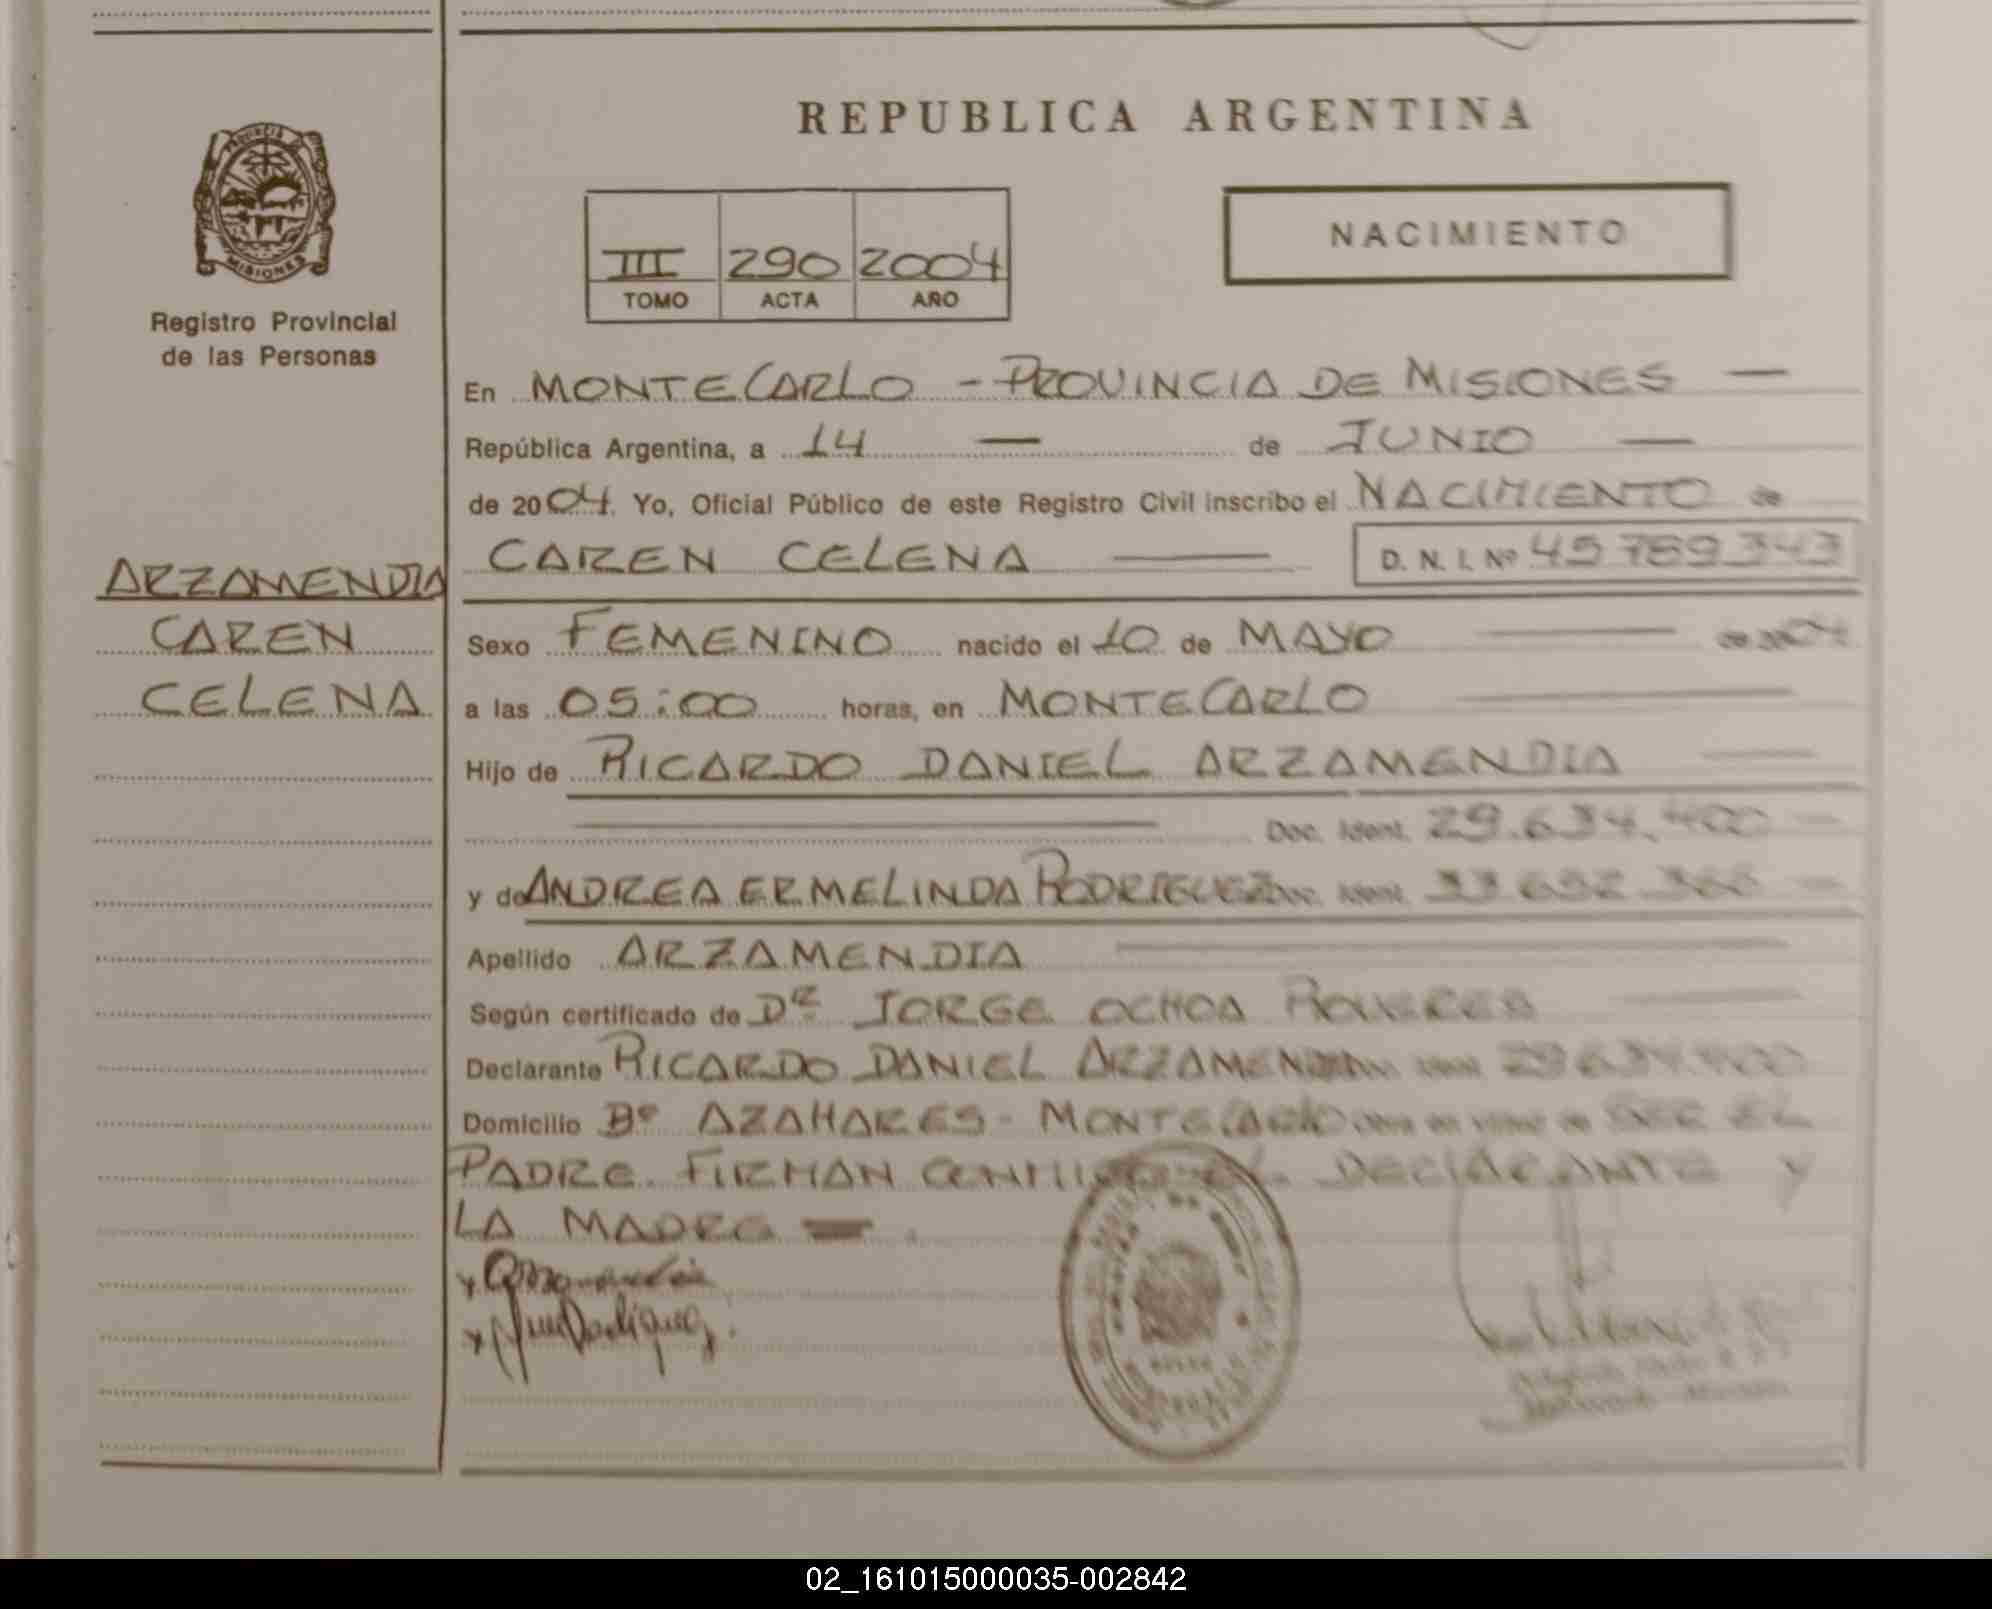 REPUBLICA ARGENTINA
PROVINCIA DE
MISIONES
Registro Provincial
de las Personas
NACIMIENTO
III 290 2004
TOMO ACTA AÑO
En MONTECARLO - PROVINCIA DE MISIONES —
República Argentina, a 14 — de JUNIO —
de 2004. Yo, Oficial Público de este Registro Civil inscribo el NACIMIENTO de
CAREN CELENA — D. N. I. Nº 45789343
ARZAMENDIA
CAREN
CELENA
Sexo FEMENINO nacido el 10 de MAYO — de 2004
a las 05:00 horas, en MONTECARLO —
Hijo de RICARDO DANIEL ARZAMENDIA —
Doc. Ident. 29.634.400 —
y de ANDREA ERMELINDA RODRIGUEZ Doc. Ident. —
Apellido ARZAMENDIA —
Según certificado de Dr JORGE OCHOA —
Declarante RICARDO DANIEL ARZAMENDIA 29.634.400
Domicilio Bº AZAHARES - MONTECARLO SER EL
PADRE. FIRMAN CONMIGO EL DECLARANTE Y
LA MADRE —.
x Arzamendia
x Rodriguez.
02_161015000035-002842